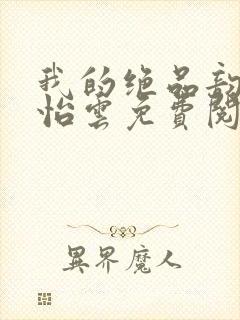 我的绝品
怡雲免費閱
異界魔人